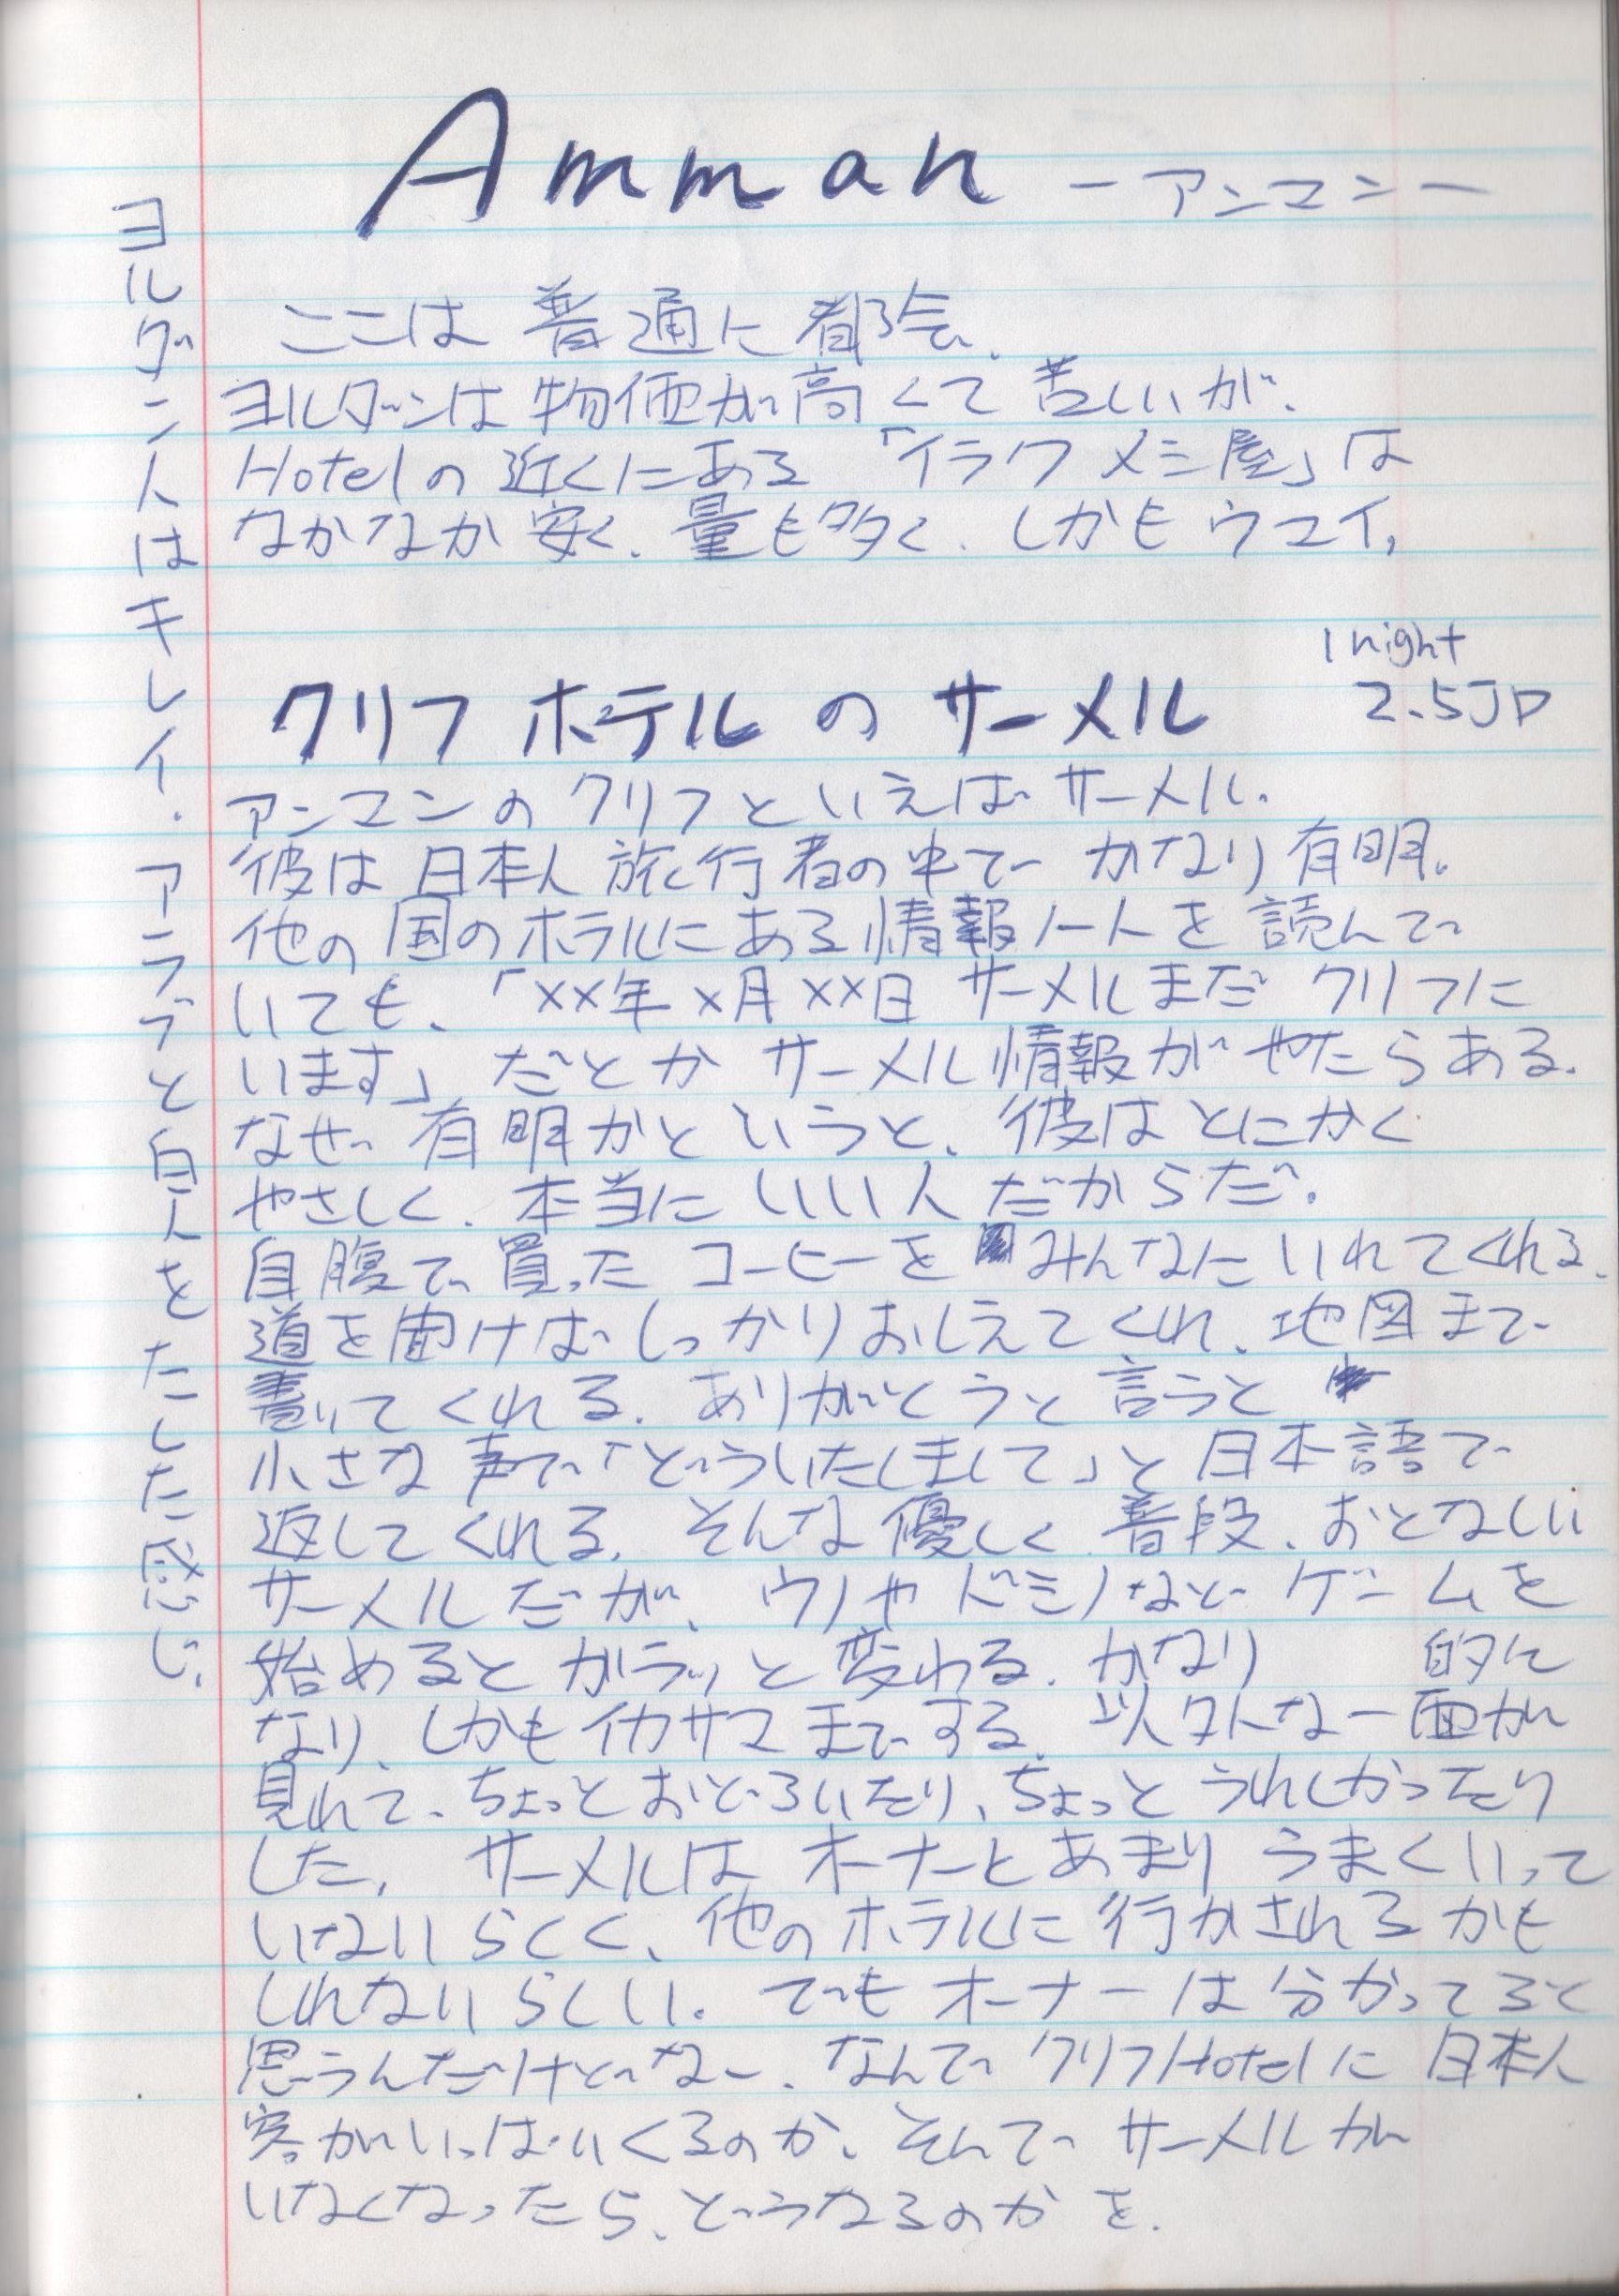 Amman -アンマン-
ここは普通に都会、
ヨルダンは物価が高くて苦しいが、
Hotelの近くにある「イラクメシ屋」は
なかなか安く、量も多く、しかもウマイ、
クリフホテルのサーメル
1 night
2.5JD
アンマンのクリフといえばサーメル、
彼は日本人旅行者の中でかなり有明。
他の国のホテルにある情報ノートを読んで
いても、「××年×月××日 サーメルまだクリフに
います」だとかサーメル情報がやたらある。
なぜ有明かというと、彼はとにかく
やさしく、本当にいい人だからだ。
自腹で買ったコーヒーをみんなにいれてくれる、
道を聞けばしっかりおしえてくれ、地図まで
書いてくれる。ありがとうと言うと
小さな声で「どういたしまして」と日本語で
返してくれる。そんな優しく普段、おとなしい
サーメルだが、ウノやドミノなどゲームを
始めるとガラッと変わる。かなり 的に
なり、しかもイカサマまでする。以外な一面が
見れて、ちょっとおどろいたり、ちょっとうれしかったり
した、 サーメルはオーナーとあまりうまくいって
いないらしく、他のホテルに行かされるかも
しれないらしい。でもオーナーは分かってると
思うんだけどなー、なんでクリフHotelに日本人
客がいっぱいくるのか、そんでサーメルが
いなくなったら、どうなるのかを.
ヨルダン人はキレイ.アラブと白人をたした感じ、